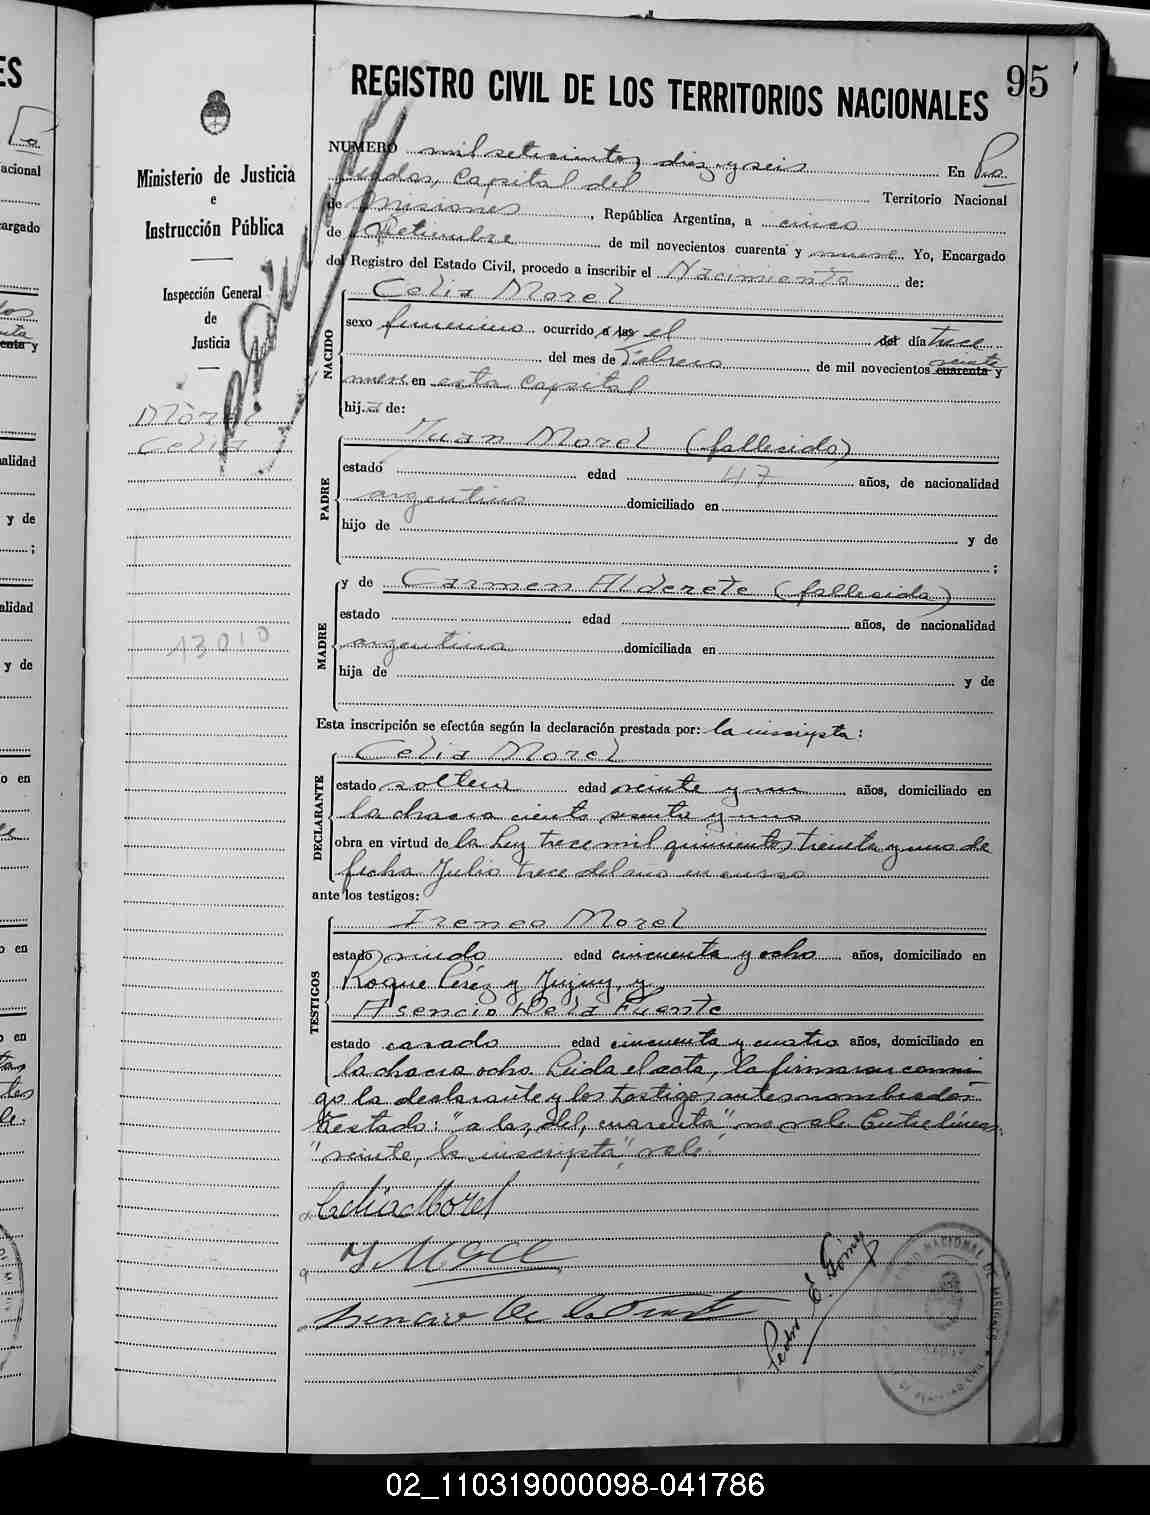 REGISTRO CIVIL DE LOS TERRITORIOS NACIONALES
95
Ministerio de Justicia
e
Instrucción Pública
Inspección General
de
Justicia
Morel
Celia
13010
NUMERO mil setecientos diez y seis En Po
sadas, Capital del Territorio Nacional
de Misiones, República Argentina, a cinco
de Setiembre de mil novecientos cuarenta y nueve Yo, Encargado
del Registro del Estado Civil, procedo a inscribir el Nacimiento de:
NACIDO
Celia Morel
sexo femenino ocurrido a las el del día trece
veinte
del mes de Febrero de mil novecientos cuarenta y
nueve en esta Capital
hija de:
PADRE
Juan Morel (fallecido)
estado edad 47 años, de nacionalidad
argentino domiciliado en
hijo de y de
;
MADRE
y de Carmen Alderete (fallecida)
estado edad años, de nacionalidad
argentina domiciliada en
hija de y de
Esta inscripción se efectúa según la declaración prestada por: la inscripta:
DECLARANTE
Celia Morel
estado soltera edad veinte y un años, domiciliado en
la chacra ciento sesenta y uno
obra en virtud de la Ley trece mil quinientos treinta y uno de
fecha Julio trece del año en curso
ante los testigos:
TESTIGOS
Ireneo Morel
estado viudo edad cincuenta y ocho años, domiciliado en
Roque Pérez y Jujuy, y
Asencio De la Fuente
estado casado edad cincuenta y cuatro años, domiciliado en
la chacra ocho. Leida el acta, la firmaron conmi-
go la declarante y los testigos antes nombrados.
Testado: "a las, del, cuarenta" no vale. Entre líneas:
"veinte, la inscripta", vale.
Celia Morel
De la Fuente
Pedro E. Gómez
02_110319000098-041786